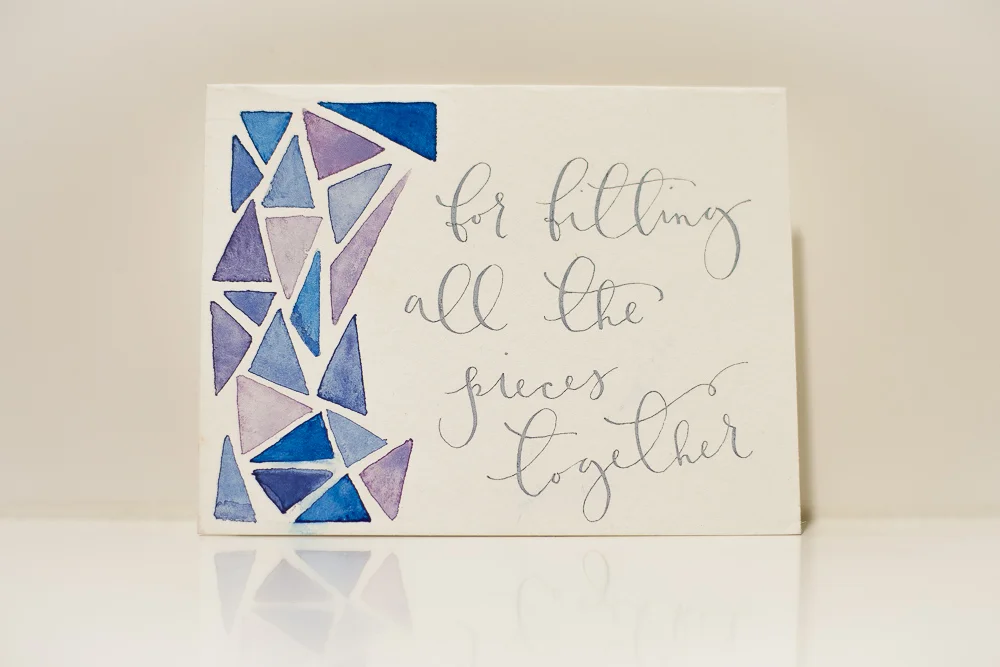 for fitting
all the
pieces
together